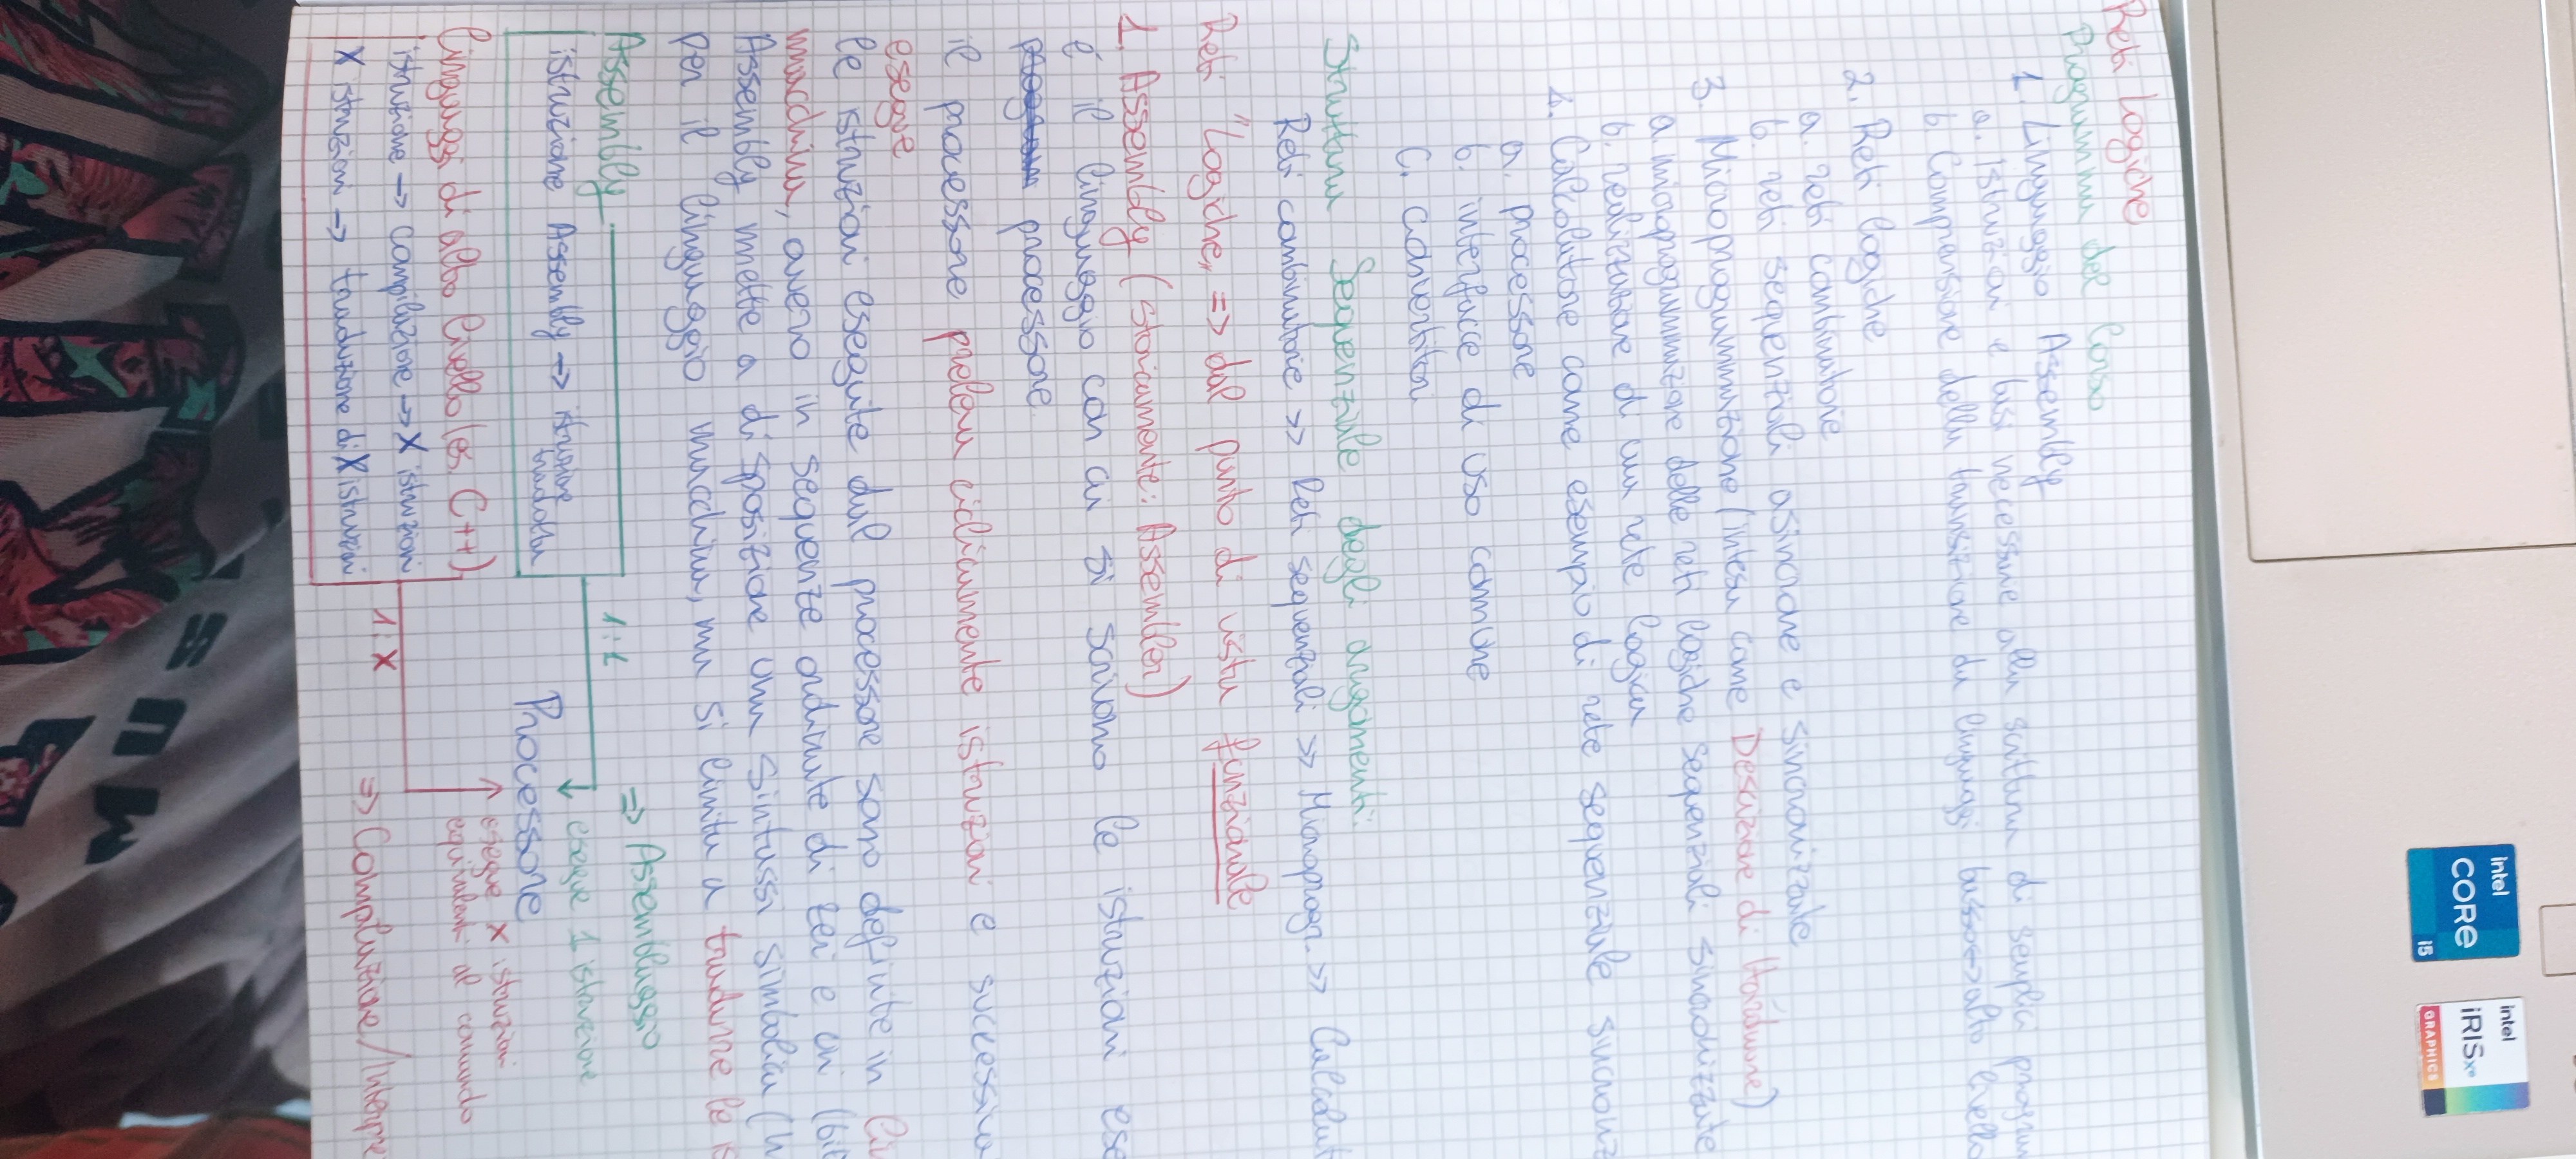 Reti Logiche
Programma del Corso
1. Linguaggio Assembly
a. Istruzioni e basi necessarie alla scrittura di semplici program
b. Comprensione della transizione da linguaggi basso↔alto livello
2. Reti logiche
a. reti combinatorie
b. reti sequenziali asincrone e sincronizzate
3. Microprogrammazione (intesa come Descrizione di Hardware)
a. microprogrammazione delle reti logiche sequenziali sincronizzate
b. realizzazione di una rete logica
4. Calcolatore come esempio di rete sequenziale sincronizz
a. processore
b. interfacce di uso comune
c. convertitori
Struttura Sequenziale degli argomenti:
Reti combinatorie >> Reti sequenziali >> Microprogr. >> Calcolat
Reti "Logiche" => dal punto di vista funzionale
1. Assembly (storicamente: Assembler)
é il linguaggio con cui si scrivono le istruzioni ese
processore.
il processore preleva ciclicamente istruzioni e successiva
esegue
le istruzioni eseguite dal processore sono definite in li
macchina, ovvero in sequenze ordinate di zeri e uni (bit
Assembly mette a disposizione una sintassi simbolica (
per il linguaggio macchina, ma si limita a tradurre le is
Assembly 1:1 => Assemblaggio
istruzione Assembly → istruzione macchina
esegue 1 istruzione
Processore
Linguaggi di alto livello (es. C++)
istruzione → compilazione → X istruzioni
X istruzioni → traduzione di X istruzioni
1:X
esegue X istruzioni
equivalenti al comando
=> Compilazione/Interpre
intel
CORE
i5
intel
iRIS Xe
GRAPHICS